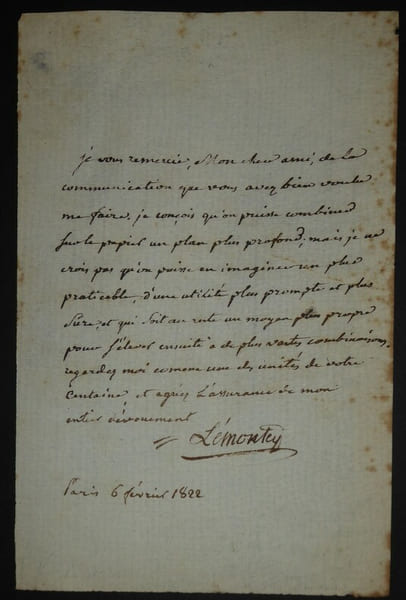 je vous remercie, Mon cher ami, de la
communication que vous avez bien voulu
me faire. je conçois qu'on puisse combiner
sur le papier un plan plus profond; mais je ne
crois pas qu'on puisse en imaginer un plus
praticable, d'une utilité plus prompte et plus
sure, et qui soit au reste un moyen plus propre
pour s'élever ensuite a de plus vastes combinaisons.
regardez moi comme une des unités de votre
centaine et agréez l'assurance de mon
entier dévouement
Lémontey
Paris 6 février 1822